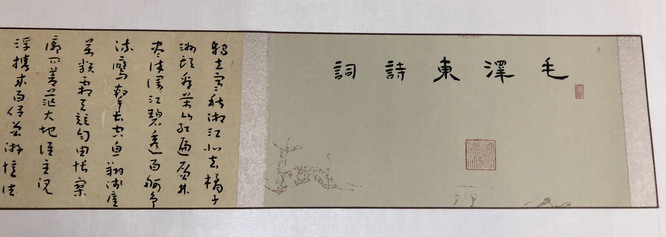 毛澤東詩詞
獨立寒秋湘江北去橘子
洲頭看萬山紅遍層林
盡染漫江碧透百舸爭
流鷹擊長空魚翔淺底
萬類霜天競自由悵寥
廓問蒼茫大地誰主沉
浮攜來百侶曾游憶往